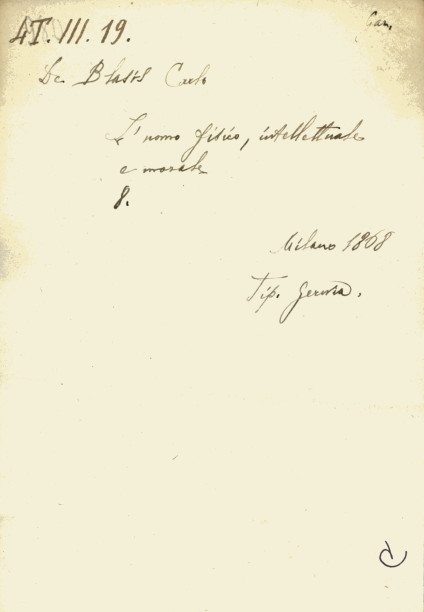 4T.III.19.
De Blasis Carlo
L'uomo fisico, intellettuale
e morale
8.
Milano 1868
Tip.